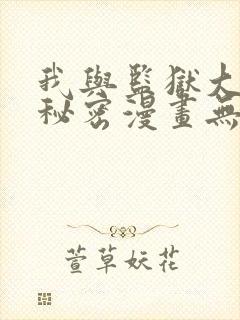 我與監獄大
秘密漫畫無
萱草妖花